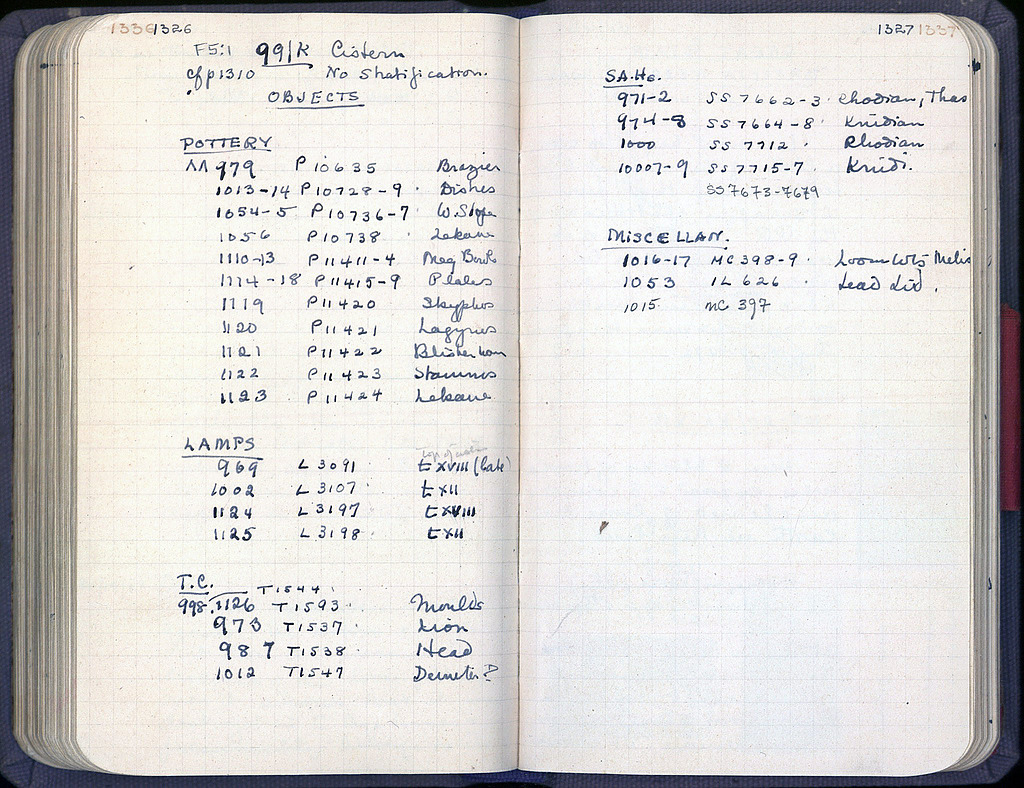 1336 1326
F5:1 99/K Cistern
cf p1310 No Stratification.
OBJECTS
POTTERY
ΛΛ 979 P 10635 Brazier
1013-14 P10728-9 · Dishes
1054-5 P 10736-7 W. Slope
1056 P 10738 · Lekane
1110-13 P 11411-4 Meg Bowls
1114-18 P 11415-9 Plates
1119 P 11420 Skyphos
1120 P 11421 Lagynos
1121 P 11422 Blister
1122 P 11423 Stamnos
1123 P 11424 Lekane
LAMPS
969 L 3091 t XVIII (Late)
1002 L 3107 t XII
1124 L 3197 t XVIII
1125 L 3198 t XII
T.C. T 1544
998, 1126 T 1593 Moulds
973 T 1537 Lion
987 T 1538 Head
1012 T 1547 Demeter?
1327 1337
SA.Ho.
971-2 SS 7662-3 · Rhodian, Thas
974-8 SS 7664-8 · Knidian
1000 SS 7712 · Rhodian
10007-9 SS 7715-7 · Knidi.
SS 7673-7679
MISCELLAN.
1016-17 MC 398-9 · Loom Wts Melis
1053 IL 626 · Lead Lid.
1015 MC 397